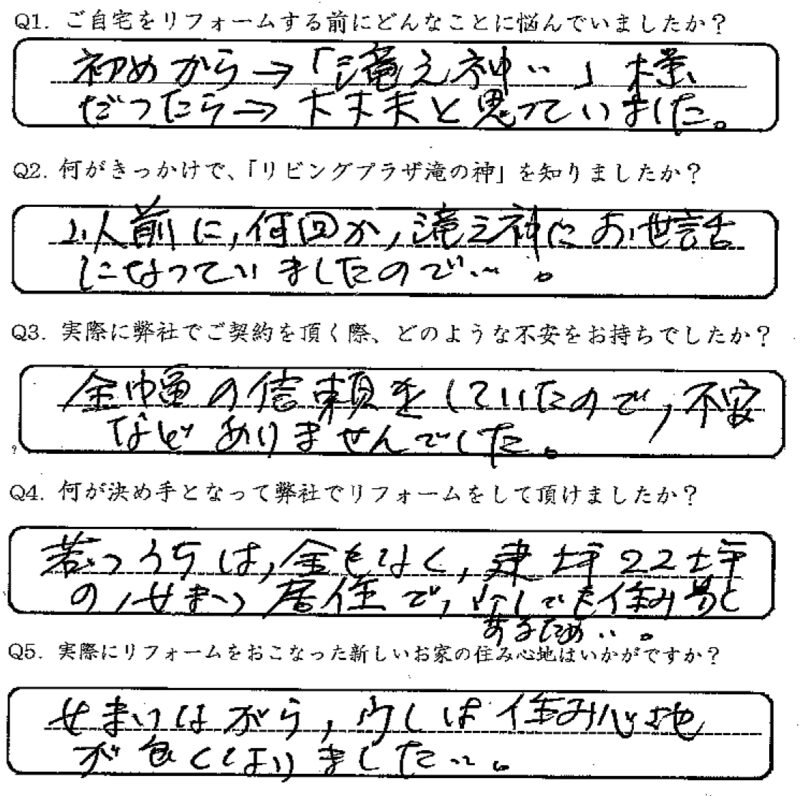 Q1. ご自宅をリフォームする前にどんなことに悩んでいましたか？
初めから→「滝之神‥」様
だったら→大丈夫と思っていました。
Q2. 何がきっかけで、「リビングプラザ滝の神」を知りましたか？
以前に, 何回か, 滝之神にお世話
になっていましたので…。
Q3. 実際に弊社でご契約を頂く際、どのような不安をお持ちでしたか？
全幅の信頼をしていたので, 不安
などありませんでした。
Q4. 何が決め手となって弊社でリフォームをして頂けましたか？
若いうちは, 金もなく, 建坪22坪
のせまい居住で, 少しでも住み易く
するため…。
Q5. 実際にリフォームをおこなった新しいお家の住み心地はいかがですか？
せまいながら, 少しは住み心地
が良くなりました…。